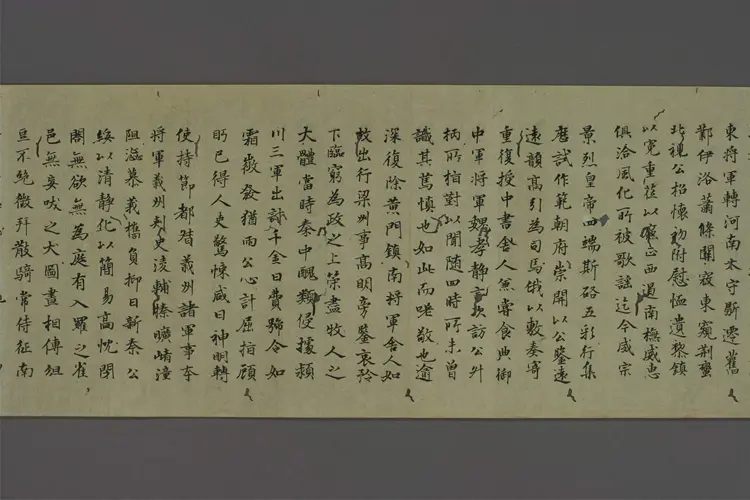 東將軍轉河南太守斯遷舊
鄴伊洛蕭條關寇東窺荆蠻
北視公招懷初附慰恤遺黎鎮
以寬重莅以寧正西過南撫威惠
俱洽風化所被歌謠迄今威宗
景烈皇帝四端斯啓五彩行集
應試作範朝府崇開以公鑒遠
逺韻高引為司馬俄以敷奏寄
重復授中書舍人無寧食典御
中軍將軍魏孝静高歡訪公外
柄所指對以聞随四時所未曽
識其篤慎也如此而嗟敬也逾
深復除黄門鎮南將軍舍人如
故出行梁州事髙明旁鑒哀矜
下臨窮為政之上策盡牧人之
大體當時秦中醜類侵據潁
川三軍出討千金日費號令如
霜嚴發猶雨公心計屈指顧
眄已得人吏驚悚咸曰神明轉
使持節都督義州諸軍事本
將軍義州刺史淩輔榛曠崤潼
阻滋慕義襁負抑日新秦公
綏以清静化以簡易高忱閉
閤無欲無為庭有入羅之雀
邑無吏吠之犬圖畫相傳俎
豆不絶徵拜散騎常侍征南